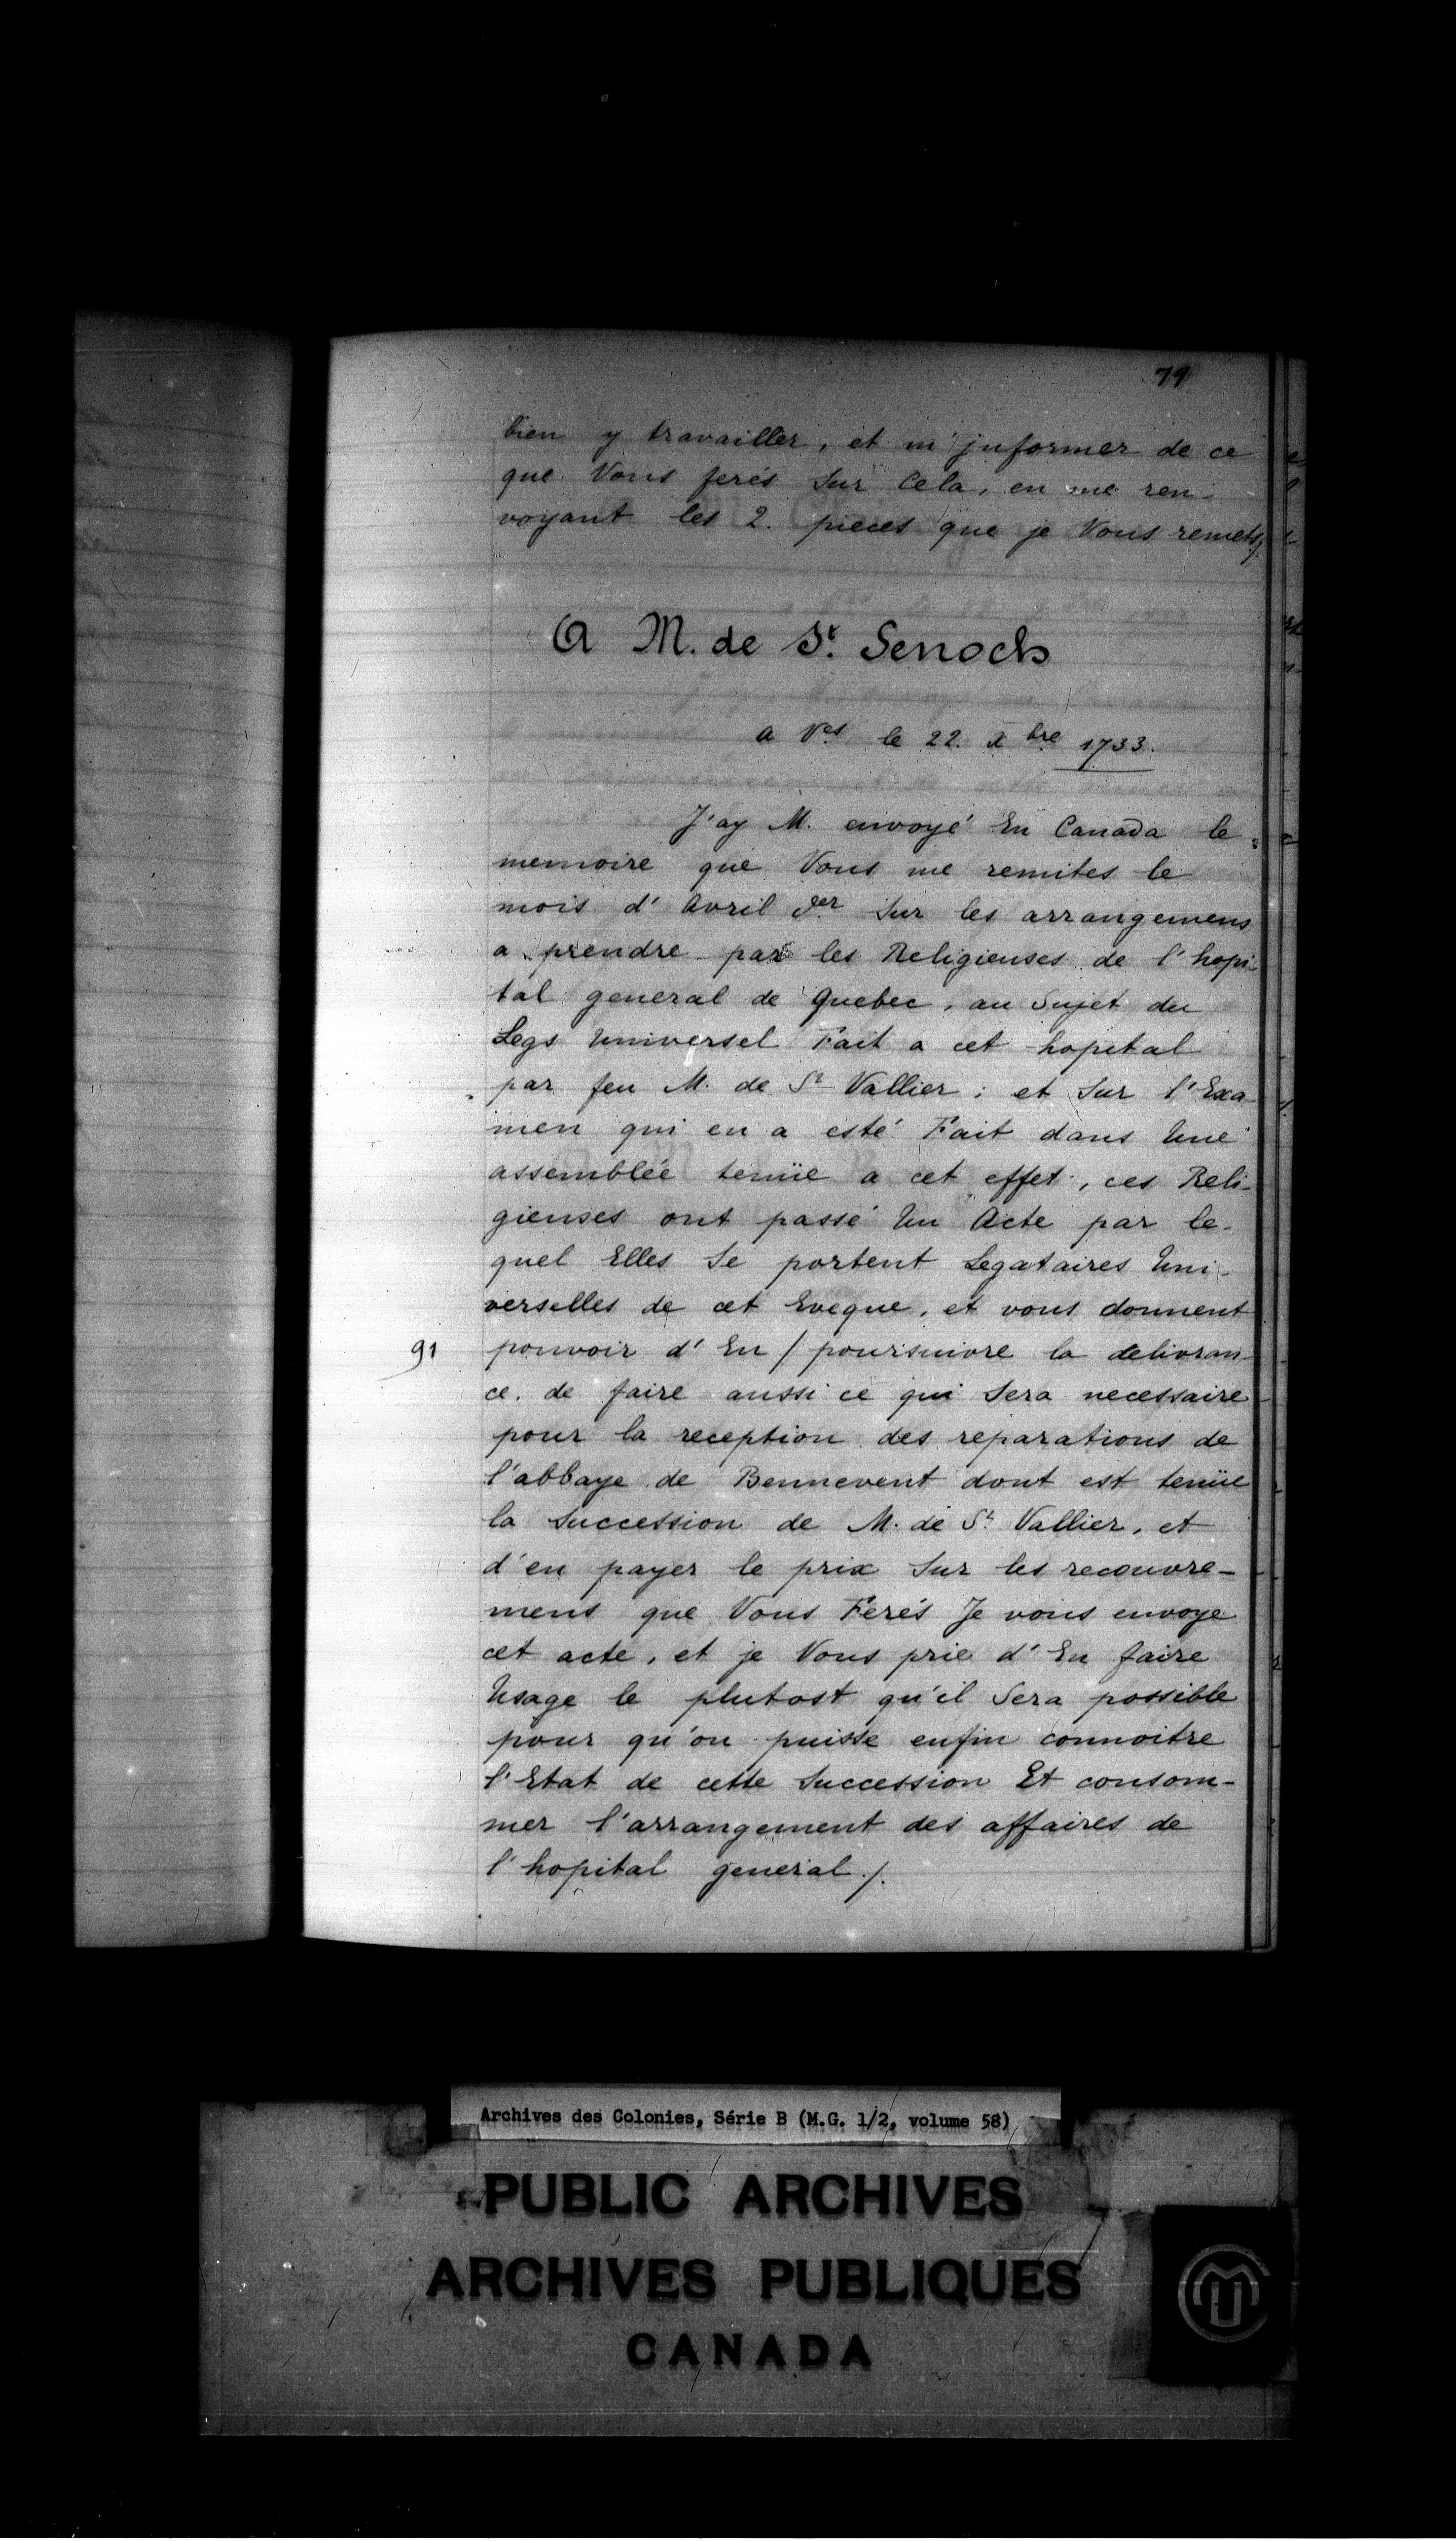 79
bien y travailler, et m'jnformer de ce
que Vous ferés Sur Cela, en me ren-
voyant les 2. pieces que je Vous remets/.
A M. de St. Senoch
a Ves le 22. Xbre 1733.
J'ay M. envoyé En Canada le
memoire que Vous me remites le
mois d' Avril der Sur les arrangemens
a prendre par les Religieuses de l'hopi-
tal general de Quebec, au Sujet du
Legs Universel Fait a cet hopital
par feu M. de St Vallier; et Sur l'Exa-
men qui en a esté Fait dans Une
assemblée tenüe a cet effet, ces Reli-
gieuses ont passé Un Acte par le-
quel Elles Se portent Legataires Uni-
verselles de cet Eveque, et vous donnent
91 pouvoir d' En / poursuivre la delivran-
ce, de faire aussi ce qui Sera necessaire
pour la reception des reparations de
l'abbaye de Bennevent dont est tenüe
la Succession de M. de St. Vallier, et
d'en payer le prix Sur les recouvre-
mens que Vous Ferés Je vous envoye
cet acte, et je Vous prie d' En faire
Usage le plutost qu'il Sera possible
pour qu'on puisse enfin connoitre
l'Etat de cette Succession Et consom-
mer l'arrangement des affaires de
l'hopital general ./.
Archives des Colonies, Série B (M.G. 1/2, volume 58)
PUBLIC ARCHIVES
ARCHIVES PUBLIQUES
CANADA